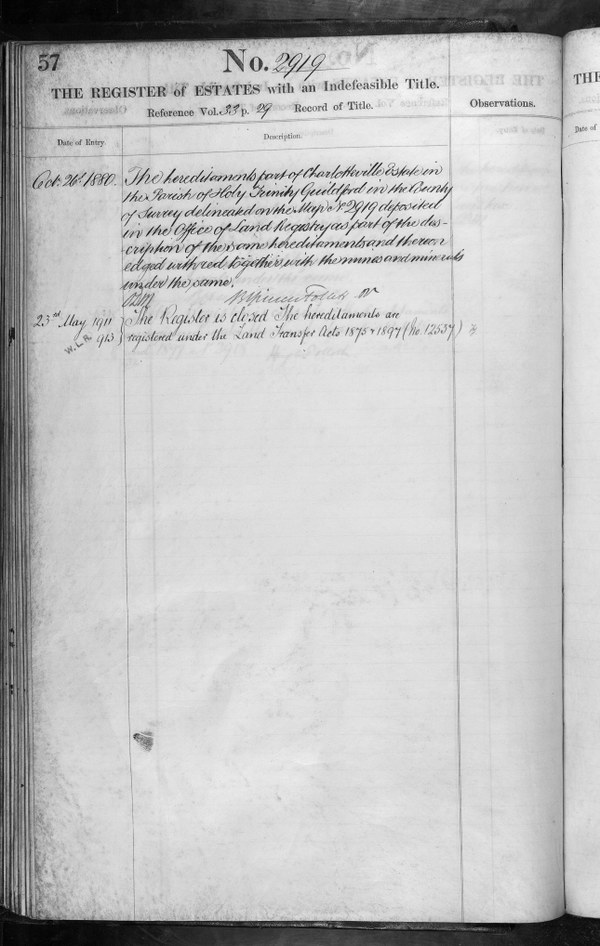 57
No. 2919
THE REGISTER of ESTATES with an Indefeasible Title.
Reference Vol. 33 p. 29 Record of Title.
Observations.
Date of Entry
Description.
Oct. 26th 1880.
The hereditaments part of Charlotteville Estate in
the Parish of Holy Trinity Guildford in the County
of Surrey delineated on the Map No 2919 deposited
in the Office of Land Registry as part of the des-
cription of the same hereditaments and thereon
edged with red together with the mines and minerals
under the same.
23rd May 1911
The Register is closed The hereditaments are
W.L.R. 913
registered under the Land Transfer Acts 1875 & 1897 (No. 12537)
THE
Date of